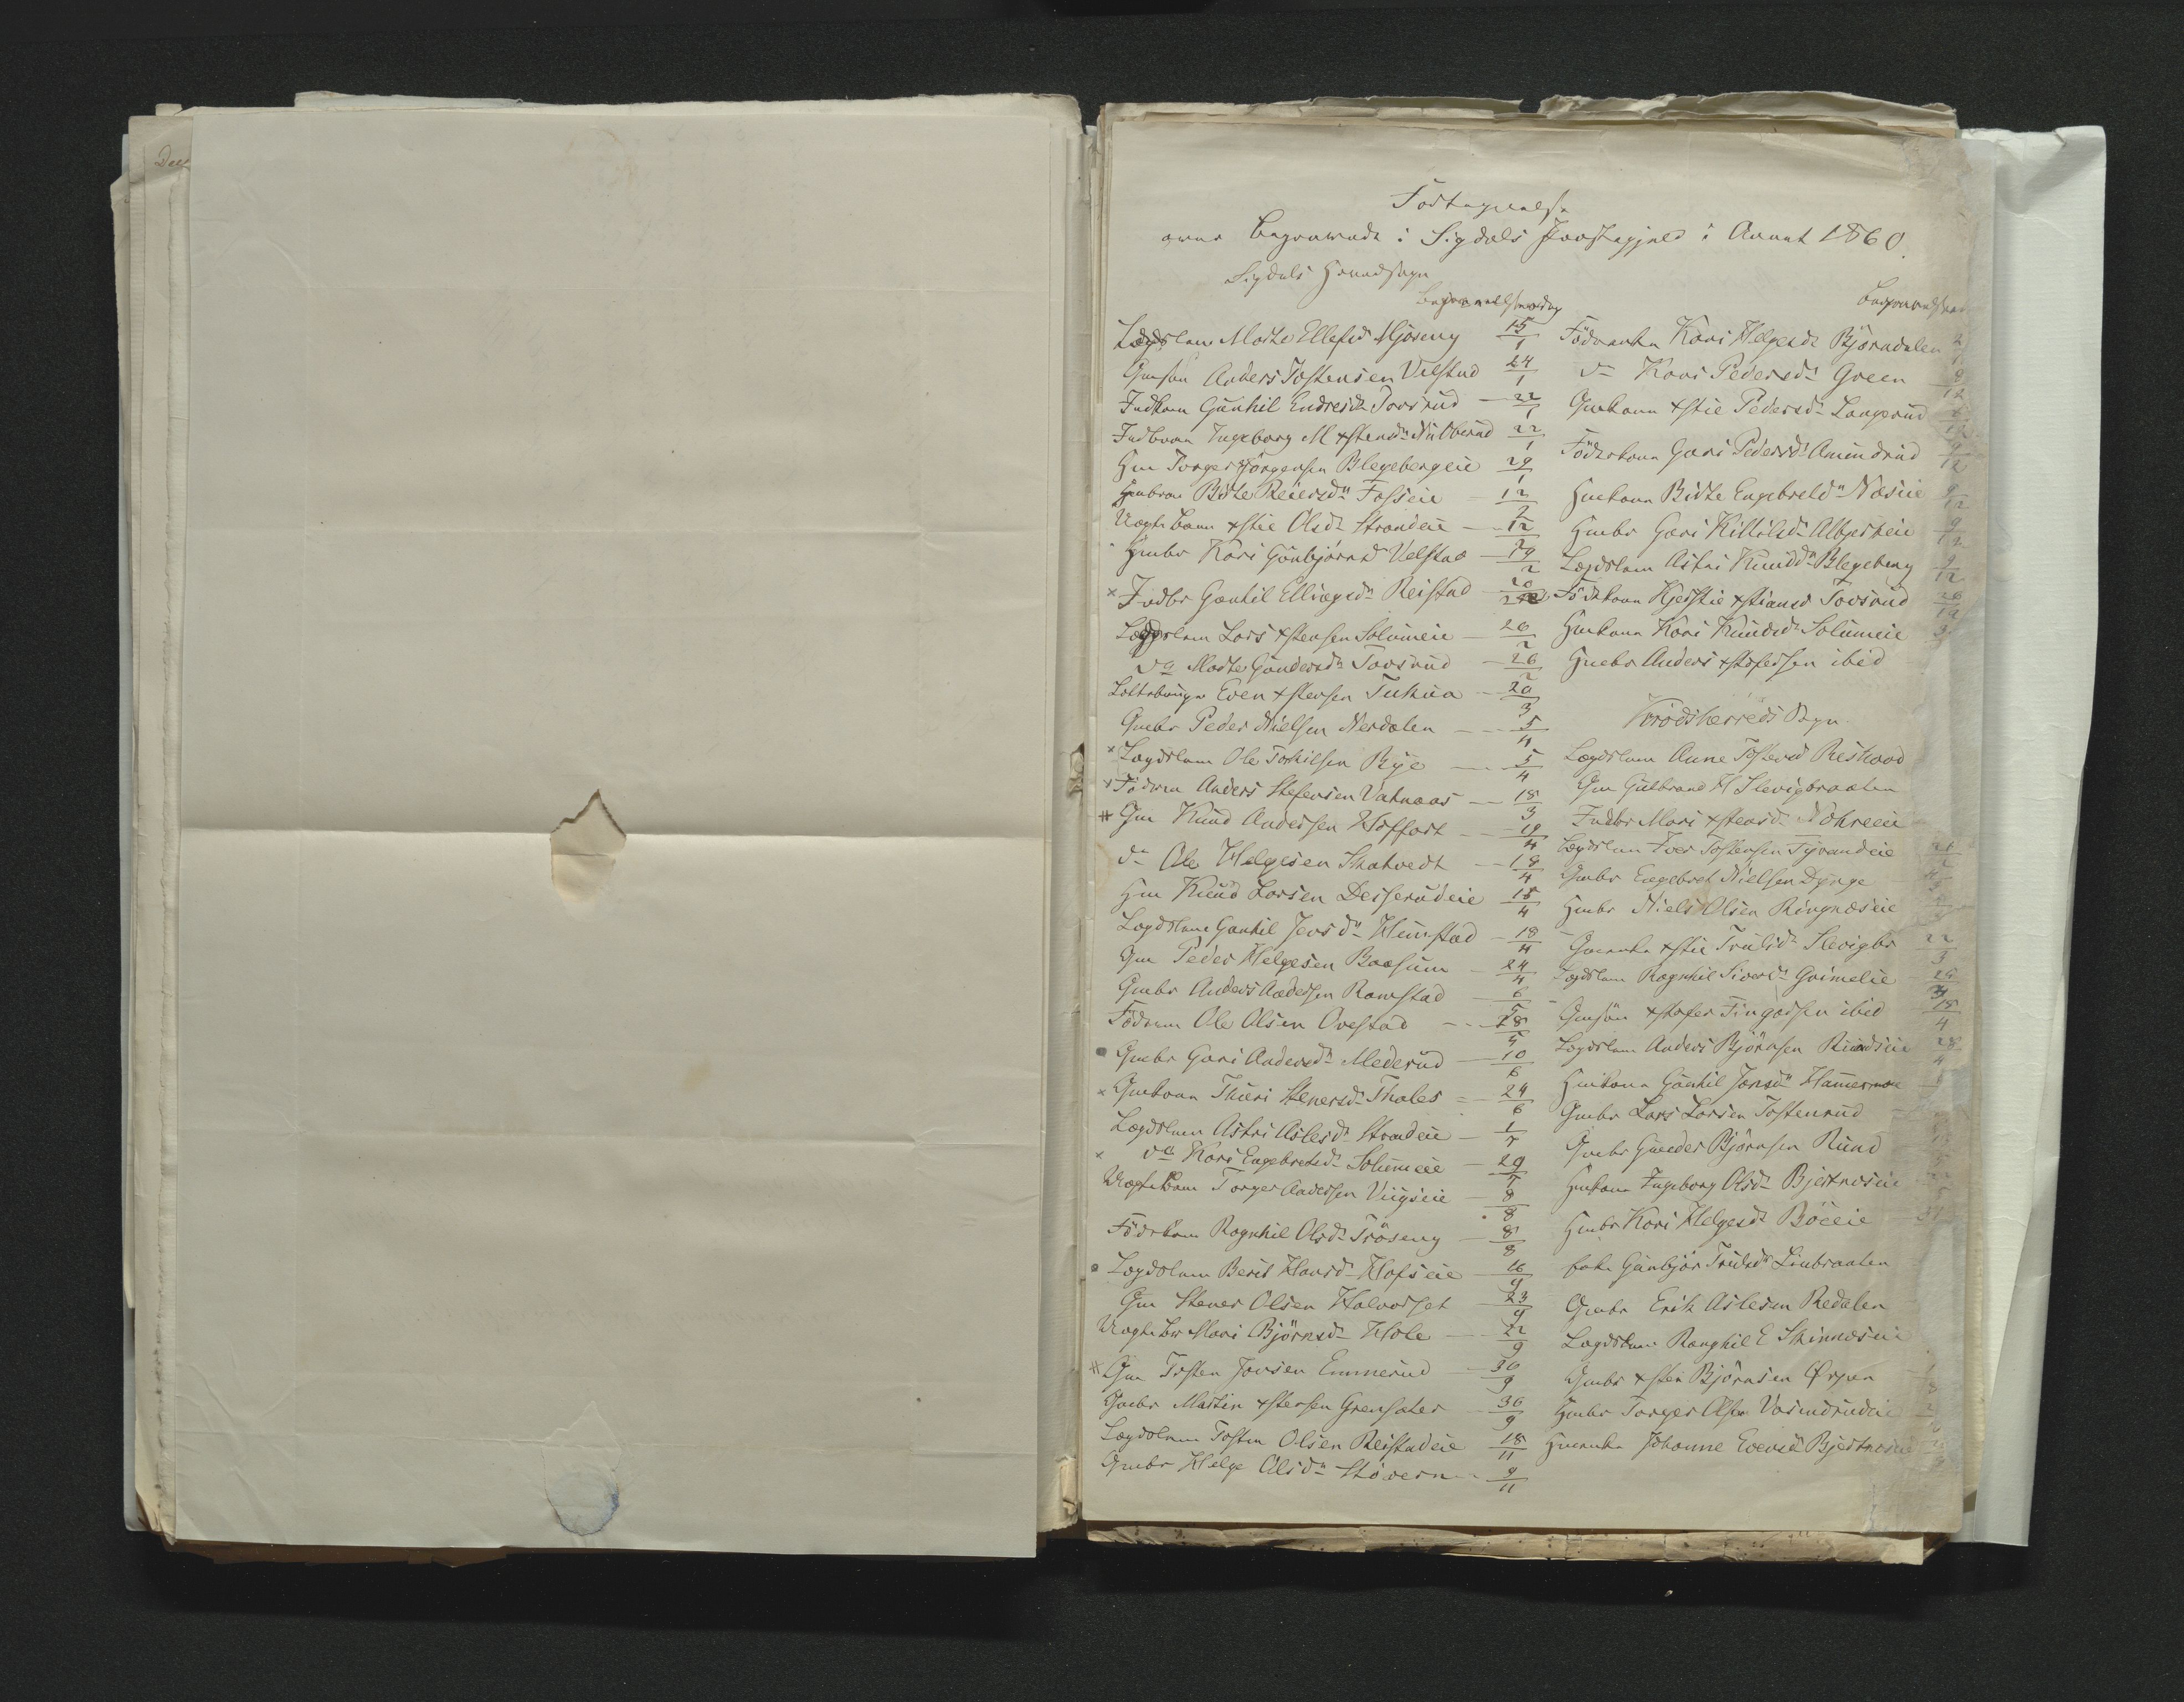 Dec
Fortegnelse
over Begravede i Sigdals Præstegjeld i Aaret 1860.
Sigdals Hovedsogn
Begravelsesdag
Lægdslem Marthe Ellefsd Mjøseng 15/1
Gmsøn Anders Tostensen Velstad 24/1
Indkone Gunhil Endresdr Torsrud — 22/1
Indbarn Ingeborg M Xstensdr Nubberud 22/1
Hm Torger Jørgensen Blegebergeie 29/1
Hmbarn Birte Reiersdr Fosseie 12/2
Uægte Barn Xstie Olsdr Strandeie — 12/2
Gmbr Kari Gunbjørnsd Velstad — 19/2
x Indbr Gunhil Ellingsdr Reistad
Lægdslem Lars Xstensen Solumeie — 26/2
do Marthe Gundersdr Torsrud — 26/2
Even Xstensen Tukua — 20/3
Gmbr Peder Nielsen Nerdalen — 5/4
x Lægdslem Ole Torkilsen Bye — 5/4
x Fødrm Anders Stefensen Vatnaas — 18/3
# Gm Knud Andersen Hoffart — 19/4
do Ole Helgesen Skatvedt — 18/4
Hm Knud Larsen Desserudeie 18/4
Lægdslem Gunhil Jensdr Hemstad — 18/4
Gm Peder Helgesen Baasum — 24/4
Gmbr Anders Andersen Ramstad — 6/5
Fødrm Ole Olsen Ovestad — 28/5
Gmbr Gari Andersdr Mederud — 10/6
x Gmkone Thuri Stenersdr Thales — 24/6
Lægdslem Astri Aslesdr Strandeie — 1/7
x do Kari Engebretsdr Solumeie — 29/7
Uægte Barn Torger Andersen Viigseie — 8/8
Fødrkone Ragnhil Olsdr Trøseng — 8/8
Lægdslem Berit Hansdr Hofseie — 16/9
Gm Stener Olsen Halvorset — 23/9
Uægte Br Mari Bjørnsdr Hole — 22/9
# Gm Tosten Jonsen Emmerud — 30/9
Gmbr Martin Xstensen Grensæter — 30/9
Lægdslem Tosten Olsen Reistadeie 18/11
Gmbr Helge Olsdr Støvern — 9/11
Fødrenke Kari Helgesdr Bjørndalen
do Kari Pedersdr Green
Gmkone Xstie Pedersdr Langerud
Fødrkone Gari Pedersdr Amundrud 9/12
Hmkone Birte Engebretsdr Næseie 9/12
Hmbr Gari Kittilsdr Albjerkeie 9/12
Lægdslem Astri Knudsdr Blegeberg 9/12
Fødrkone Kjerstie Xstiansd Torsrud
Hmkone Kari Knudsdr Solumeie
Gmbr Anders Xstofersen ibid
Krødsherreds Sogn
Lægdslem Anne Tostensd Reskood
Gm Gulbrand H Slevigbraaten
Indbr Mari Xstensdr Nokreeie
Lægdslem Iver Tostensen Tyrandeie
Gmbr Engebret Nielsen Dynge
Hmbr Niels Olsen Ringnæseie
Gmenke Xstie Trulsdr Slevigbr 22/3
Lægdslem Ragnhil Siversdr Grimelie
Gmsøn Xstofer Fingarsen ibid 18/4
Lægdslem Anders Bjørnsen Rundeie 28/4
Hmkone Gunhil Jonsdr Hammermoe
Gmbr Lars Larsen Tostenrud
Gmbr Gunder Bjørnsen Rund
Hmkone Ingeborg Olsdr Bjertnæseie
Hmbr Kari Helgesdr Bøeeie
Gunbjør Trulsdr Linbraaten
Gmbr Erik Aslesen Redalen
Lægdslem Ranghil E Skinnæseie
Gmbr Xsten Bjørnsen Ørpen
Hmbr Torger Olsen Vasendrudeie
Hmenke Johanne Eversd Bjertnæseie